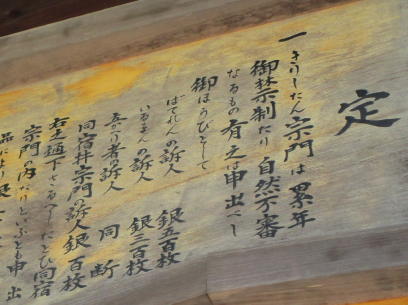 定
一 きりしたん宗門は累年
御禁制たり自然不審
なるもの有之は申出べし
御ほうびとして
ばてれんの訴人 銀五百枚
いるまんの訴人 銀三百枚
立かへり者の訴人 同断
同宿并宗門の訴人 銀百枚
右之通下さるべしたとひ同宿
宗門の内たりといふとも申出
品により銀